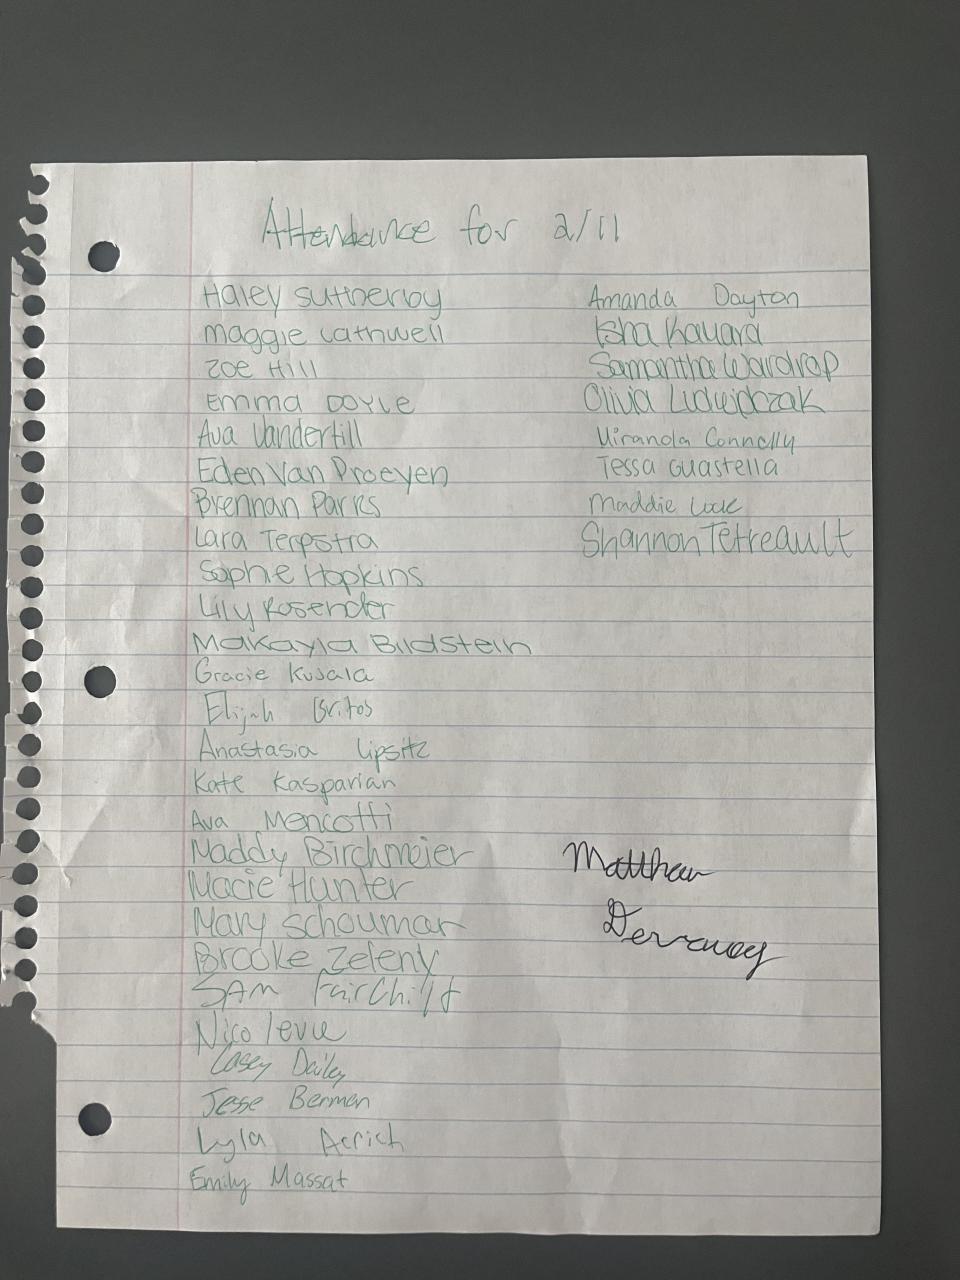 Attendance for 2/11
Haley Sutherby
Maggie Cathwell
Zoe Hill
Emma Doyle
Ava Vanderhill
Eden Van Proeyen
Brennan Parks
Lara Terpstra
Sophie Hopkins
Lily Rosender
Makayla Bildstein
Gracie Kusala
Elijah Britos
Anastasia Lipsitz
Kate Kasparian
Ava Mencotti
Maddy Birchmeier
Macie Hunter
Mary Schoumar
Brooke Zeleny
SAM
Nico
Casey Dailey
Jesse Berman
Lyla Acrich
Emily Massat
Amanda Dayton
Isha
Samantha Wardrop
Olivia
Miranda Connolly
Tessa Guastella
Maddie
Shannon Tetreault
Matthew